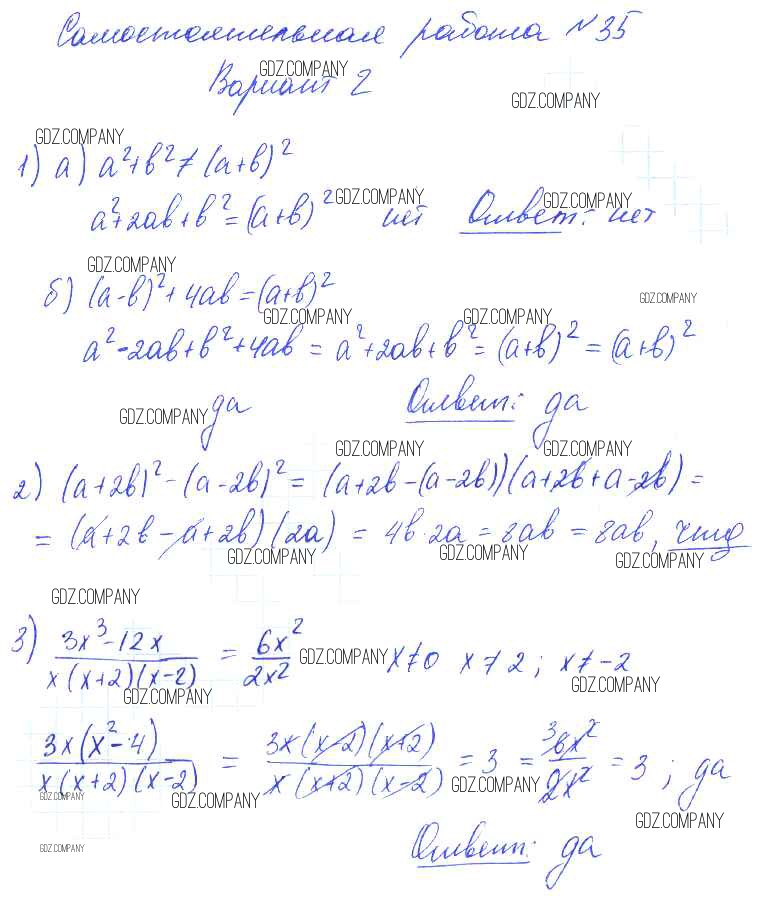 Самостоятельная работа №35
GDZ.COMPANY
Вариант 2
GDZ.COMPANY
GDZ.COMPANY
1) а) a²+b² ≠ (a+b)²
GDZ.COMPANY GDZ.COMPANY
a²+2ab+b² = (a+b)² нет Ответ: нет
GDZ.COMPANY
б) (a-b)²+4ab=(a+b)²
GDZ.COMPANY
GDZ.COMPANY GDZ.COMPANY
a²-2ab+b²+4ab = a²+2ab+b² = (a+b)² = (a+b)²
GDZ.COMPANY да Ответ: да
GDZ.COMPANY GDZ.COMPANY
2) (a+2b)²-(a-2b)² = (a+2b-(a-2b))(a+2b+a-2b) =
= (a+2b-a+2b)(2a) = 4b·2a = 8ab = 8ab, чтд
GDZ.COMPANY GDZ.COMPANY GDZ.COMPANY
GDZ.COMPANY
3) (3x³-12x)/(x(x+2)(x-2)) = 6x²/2x² GDZ.COMPANY x≠0 x≠2; x≠-2
GDZ.COMPANY GDZ.COMPANY
(3x(x²-4))/(x(x+2)(x-2)) = (3x(x-2)(x+2))/(x(x+2)(x-2)) = 3 = ³6x²/2x² = 3; да
GDZ.COMPANY GDZ.COMPANY GDZ.COMPANY
GDZ.COMPANY
GDZ.COMPANY
Ответ: да